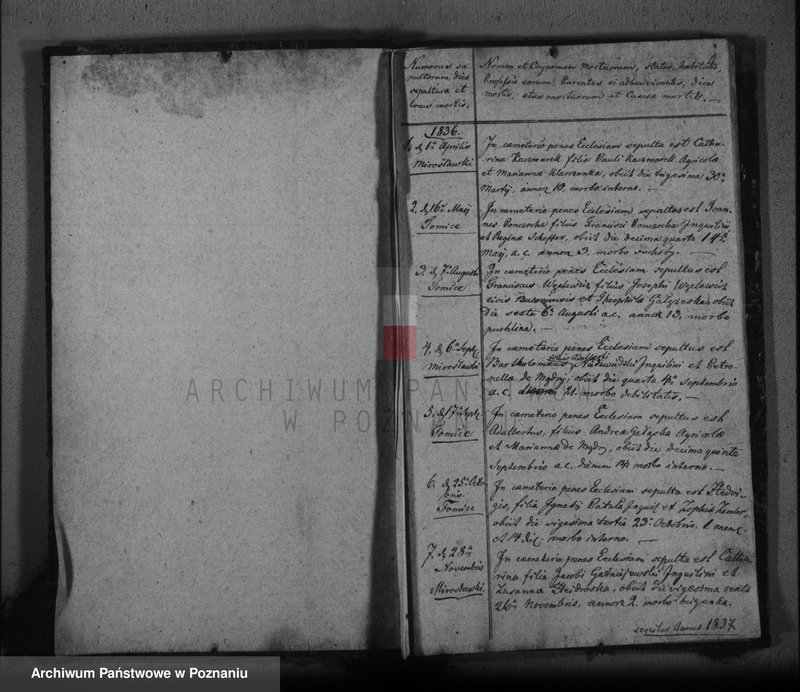 Numerus se
pultorum, dies
sepultura et
locus mortis.
Nomen et Cognomen Mortuorum, status, habitatio
Professio eorum, Parentes si adhuc viventes, dies
mortis, etas mortuorum et Causæ mortis.
1836.
1. d. 1a Aprilis
Mirosławki
In cæmeterio penes Ecclesiam sepulta est Catha
rina Kaczmarek filia Pauli Kaczmarek Agricola
et Mariannæ, obiit die trigesima 30a
Martij, annor. 10. morbo interno. —
2. d. 16a Maij
Tomice
In cæmeterio penes Ecclesiam sepultus est Joan-
nes filius Francisci Inquilini
et Reginæ Scheffer, obiit die decima quarta 14a
Maij, a.c. annor. 3. morbo
3. d. 7a Augusti
Tomice
In cæmeterio penes Ecclesiam sepultus est
Franciscus filius Josephi
civis et obiit
die sexta 6a Augusti a.c. annor. 13, morbo
puchlina. —
4. d. 6a Sept.
Mirosławki
In cæmeterio penes Ecclesiam sepultus est
Bartholomæus Inquilini et Petro-
nella de Mądry, obiit die quarta 4a Septembris
a.c. 21. morbo debilitatis. —
5. d. 17a Sept.
Tomice
In cæmeterio penes Ecclesiam sepultus est
Adalbertus, filius Andreæ Agricolæ
et Mariannæ de Mądry, obiit die decima quinta
Septembris a.c. dierum 14 morbo interno. —
6. d. 25a Octo-
bris
Tomice
In cæmeterio penes Ecclesiam sepulta est Hedvi-
gis, filia Ignatij et Sophia
obiit die vigesima tertia 23a Octobris. 1 mens.
et 14 die. morbo interno. —
7. d. 28a
Novembris
Mirosławki.
In cæmeterio penes Ecclesiam sepulta est Catha
rina filia Jacobi Inquilini et
Susanna obiit die vigesima sexta
26a Novembris, annor. 2. morbo biegunka.
sequitur Annus 1837.
ARCHIWUM PAŃ
W POZNAN
Archiwum Państwowe w Poznaniu